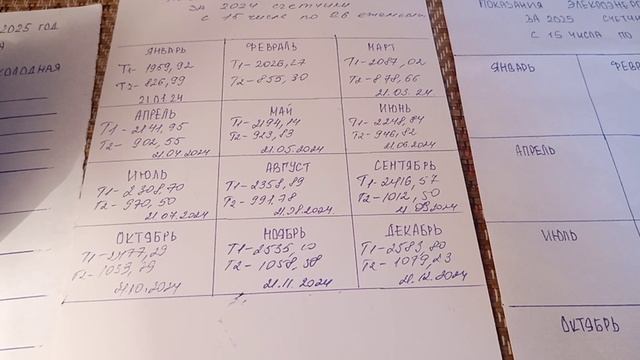 2025 ГОД
ХОЛОДНАЯ
ЗА 2024 СЧЕТЧИКИ
С 15 ЧИСЛА ПО 26
ЯНВАРЬ
Т1-1959,92
Т2-826,99
21.01.24
ФЕВРАЛЬ
Т1-2026,27
Т2-855,30
МАРТ
Т1-2087,02
Т2-878,66
21.03.24
АПРЕЛЬ
Т1-2141,95
Т2-902,55
21.04.2024
МАЙ
Т1-2194,14
Т2-923,83
21.05.2024
ИЮНЬ
Т1-2248,84
Т2-946,82
21.06.2024
ИЮЛЬ
Т1-2308,70
Т2-970,50
21.07.2024
АВГУСТ
Т1-2358,89
Т2-991,78
21.08.2024
СЕНТЯБРЬ
Т1-2416,57
Т2-1012,50
21.09.2024
ОКТЯБРЬ
Т1-2477,29
21.10.2024
НОЯБРЬ
Т2-1058,98
21.11.2024
ДЕКАБРЬ
Т1-2583,80
Т2-1079,23
21.12.2024
ПОКАЗАНИЯ
ЗА 2025
С 15 ЧИСЛА ПО
ЯНВАРЬ
ФЕВР
АПРЕЛЬ
ИЮЛЬ
ОКТЯБРЬ